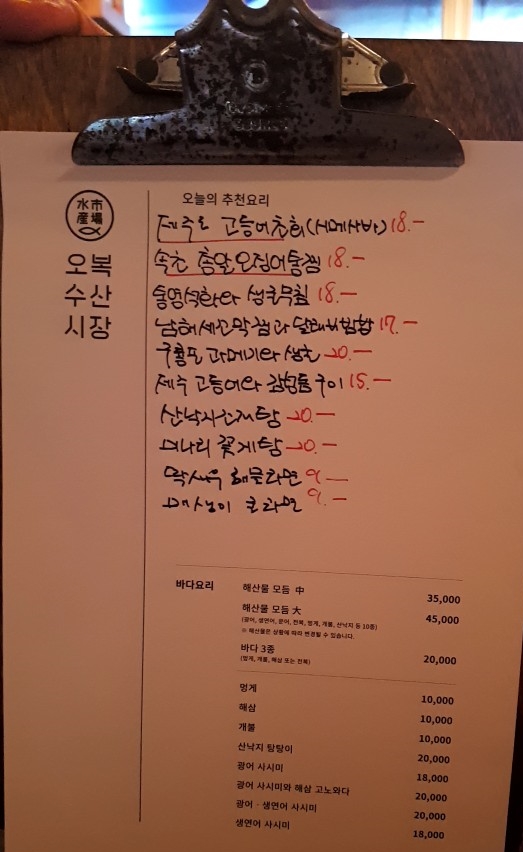 水市
産場
오복
수산
시장
오늘의 추천요리
제주도 고등어초회(시메사바) 18.-
속초 총알오징어통찜 18.-
통영석화와 생굴무침 18.-
남해새꼬막찜과 달래비빔밥 17.-
구룡포 과메기와 쌈 20.-
제주 고등어와 구이 15.-
산낙지 20.-
미나리 꽃게탕 20.-
딱새우 해물라면 9.-
매생이 굴라면 9.-
바다요리
해산물 모듬 中 35,000
해산물 모듬 大 45,000
(광어, 생연어, 문어, 전복, 멍게, 개불, 산낙지 등 10종)
※ 해산물은 상황에 따라 변경할 수 있습니다.
바다 3종 20,000
(멍게, 개불, 해삼 또는 전복)
멍게 10,000
해삼 10,000
개불 10,000
산낙지 탕탕이 20,000
광어 사시미 18,000
광어 사시미와 해삼 고노와다 20,000
광어 · 생연어 사시미 20,000
생연어 사시미 18,000